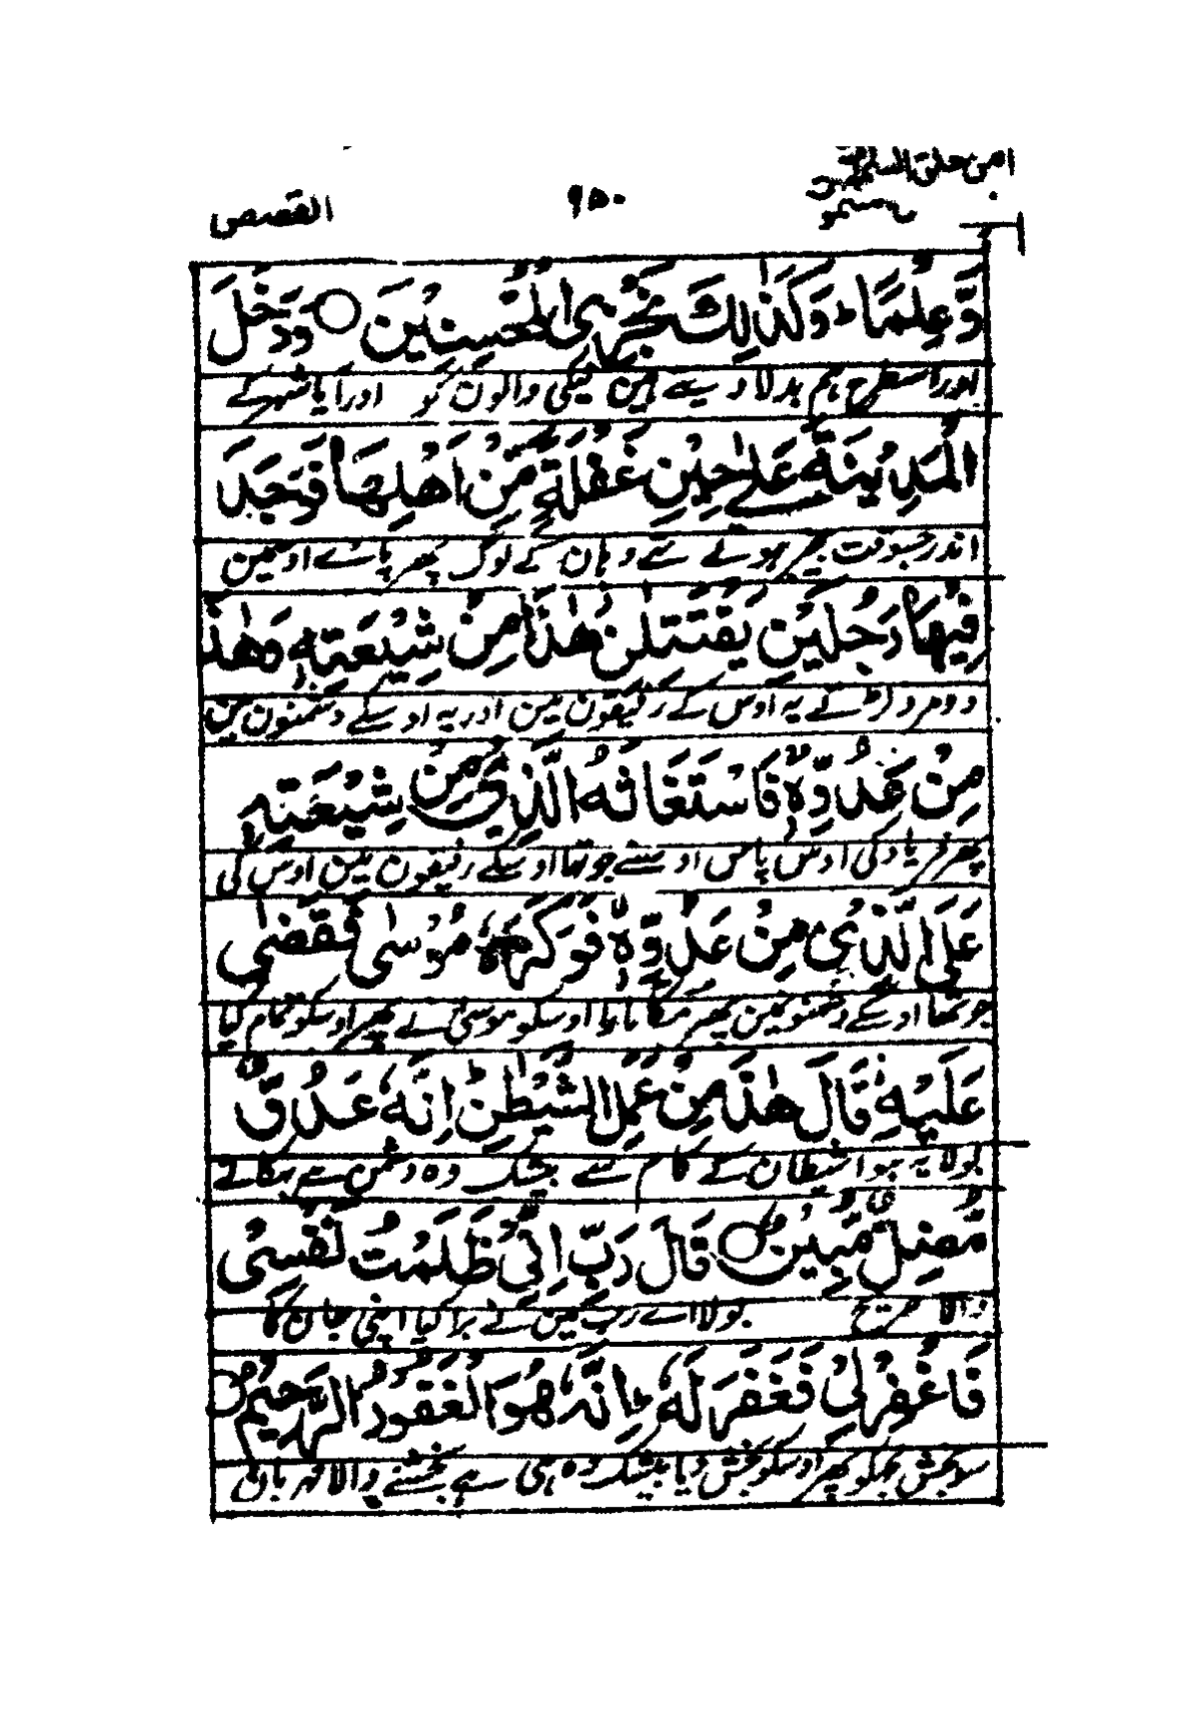 امن خلق السموت
القصص ٩٥٠
وَّعِلْمًا ؕ وَكَذٰلِكَ نَجْزِي الْمُحْسِنِيْنَ ○ وَدَخَلَ
اوراسطرح ہم بدلا دیتے ہین نیکی والون کو اور آیا شہر کے
الْمَدِيْنَةَ عَلٰے حِيْنِ غَفْلَةٍ مِّنْ اَهْلِهَا فَوَجَدَ
اندر جسوقت بیخبر ہوئے تھے وہان کے لوگ پھر پائے اوسمین
فِيْهَا رَجُلَيْنِ يَقْتَتِلٰنِ هٰذَا مِنْ شِيْعَتِهٖ وَهٰذَا
دو مرد لڑتے یہ اوس کے رفیقون مین اور یہ اوسکے دشمنون مین
مِنْ عَدُوِّهٖ فَاسْتَغَاثَهُ الَّذِيْ مِنْ شِيْعَتِهٖ
پھر فریاد کی اوس پاس اوسنے جو تھا اوسکے رفیقون مین اوس کی
عَلَى الَّذِيْ مِنْ عَدُوِّهٖ فَوَكَزَهٗ مُوْسٰى فَقَضٰى
جو تھا اوسکے دشمنونمین پھر مکا مارا اوسکو موسیٰ نے پھر اوسکو تمام کیا
عَلَيْهِ قَالَ هٰذَا مِنْ عَمَلِ الشَّيْطٰنِ اِنَّهٗ عَدُوٌّ
بولا یہ ہوا شیطان کے کام سے بیشک وہ دشمن ہے بہکانے
مُّضِلٌّ مُّبِيْنٌ ○ قَالَ رَبِّ اِنِّيْ ظَلَمْتُ نَفْسِيْ
والا صریح بولا اے رب مین نے برا کیا اپنی جان کا
فَاغْفِرْ لِيْ فَغَفَرَ لَهٗ ؕ اِنَّهٗ هُوَ الْغَفُوْرُ الرَّحِيْمُ ○
سو بخش مجھکو پھر اوسکو بخش دیا بیشک وہ ہی ہے بخشنے والا مہربان